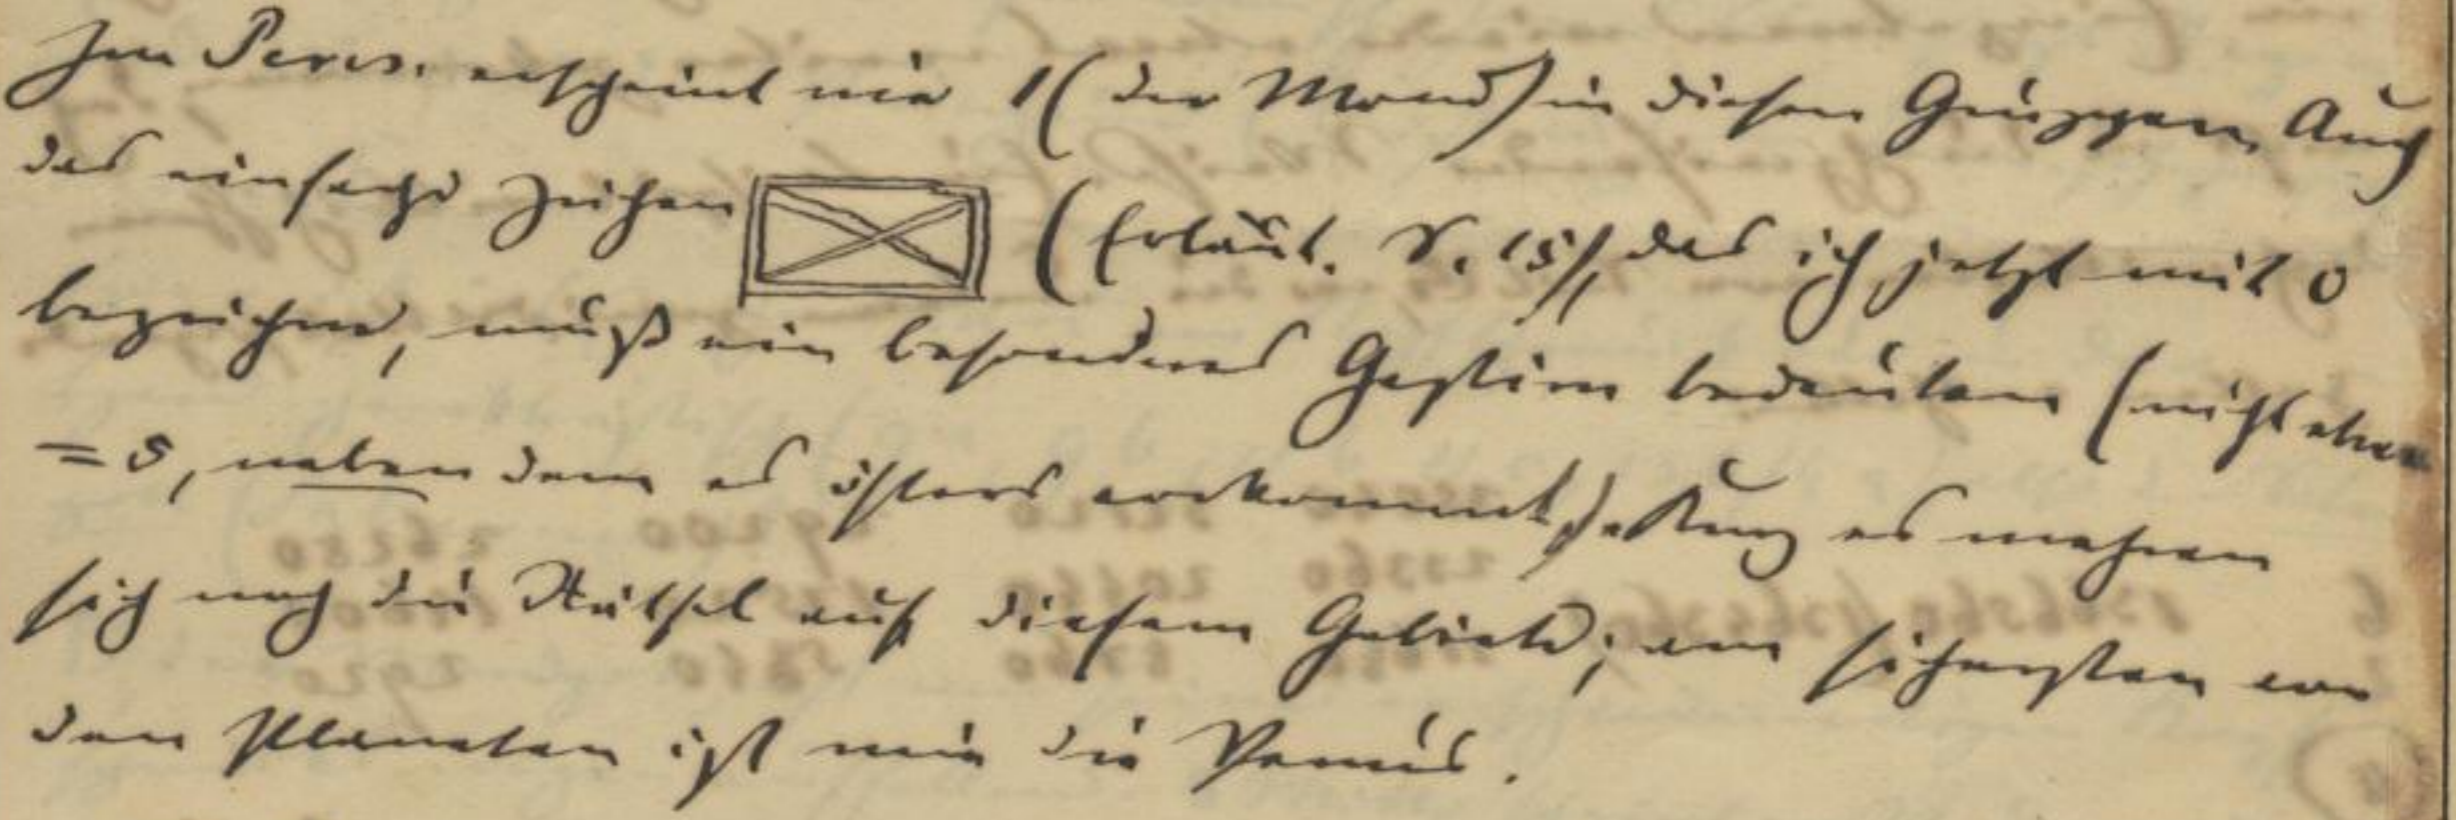 Im Peres. erscheint nie 1 (der Mond) in diesen Gruppen. Auch
das einfache Zeichen (Erläut. S. 15), das ich jetzt mit 0
bezeichne, muß ein besonderes Gestirn bedeuten (nicht etwa
= 8, neben dem es öfters vorkommt). Kurz es mehren
sich noch die Rätsel auf diesem Gebiete; am sichersten von
den Planeten ist mir die Venus.